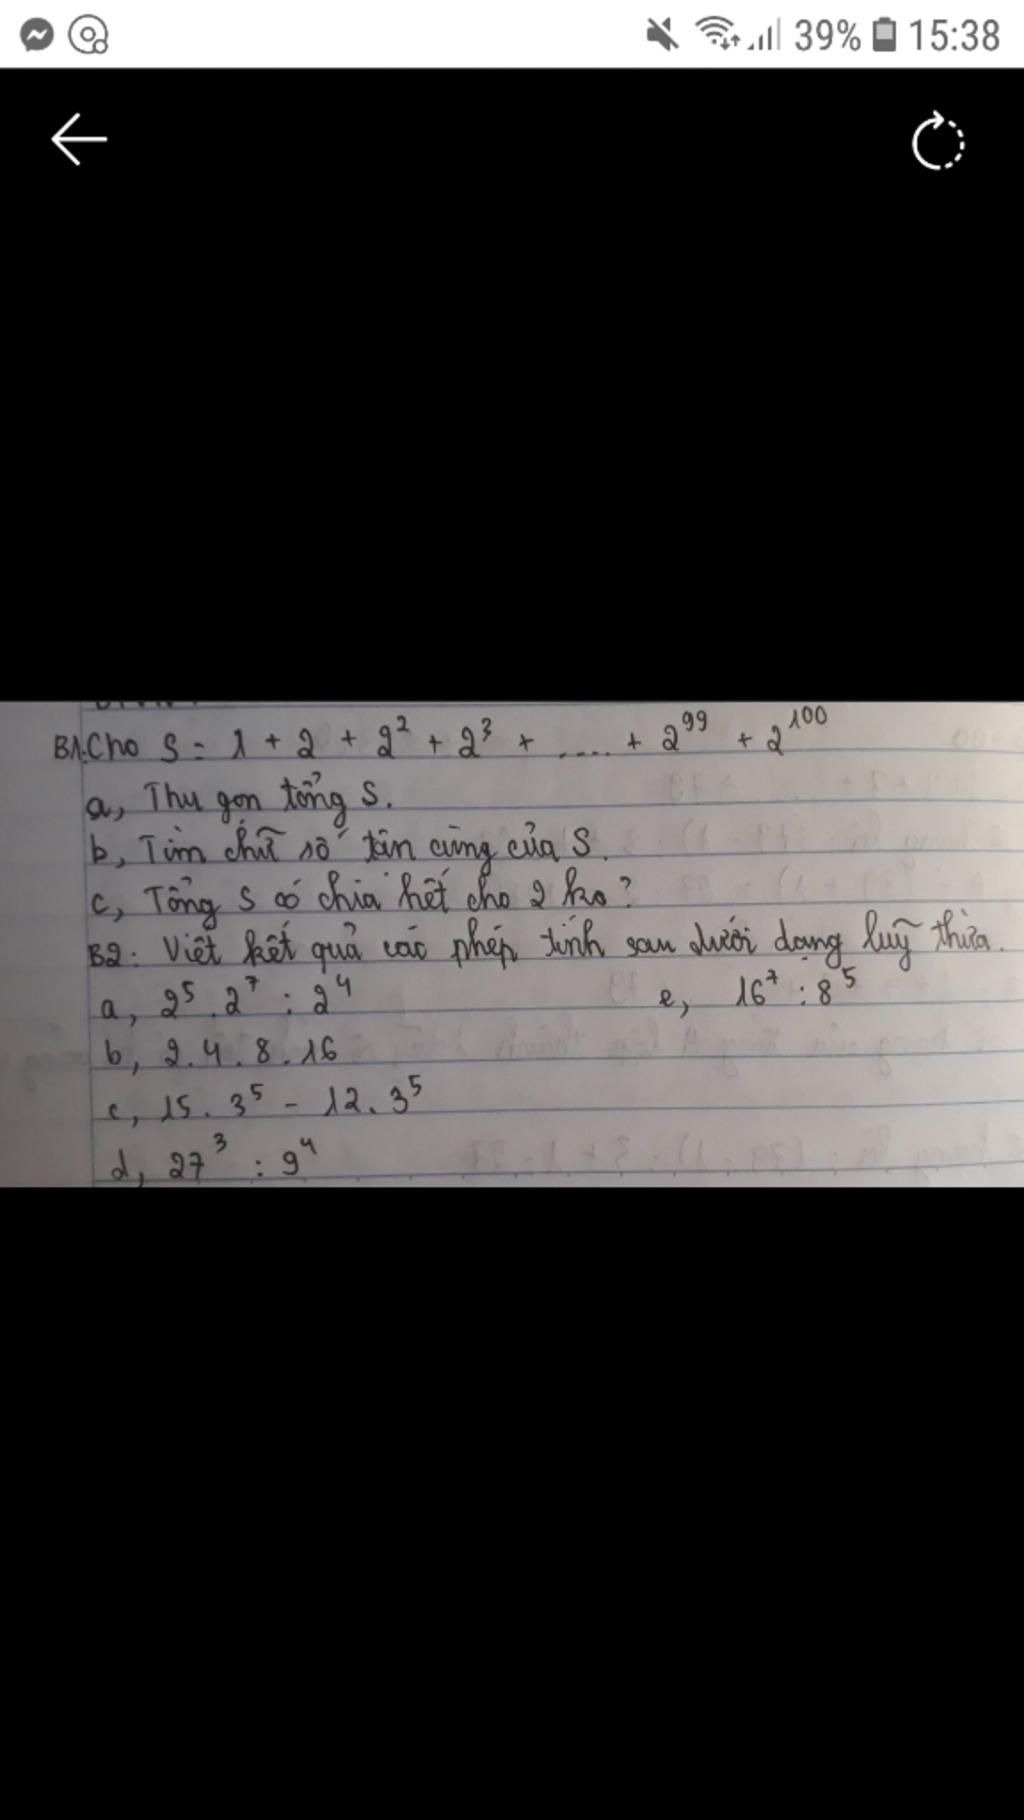 39% 15:38
B1. Cho S = 1 + 2 + 2² + 2³ + ..... + 2⁹⁹ + 2¹⁰⁰
a, Thu gọn tổng S.
b, Tìm chữ số tân cùng của S.
c, Tổng S có chia hết cho 2 ko?
B2: Viết kết quả các phép tính sau dưới dạng luỹ thừa.
a, 2⁵ . 2⁷ : 2⁴ e, 16⁷ : 8⁵
b, 2 . 4 . 8 . 16
c, 15 . 3⁵ - 12 . 3⁵
d, 27³ : 9⁴